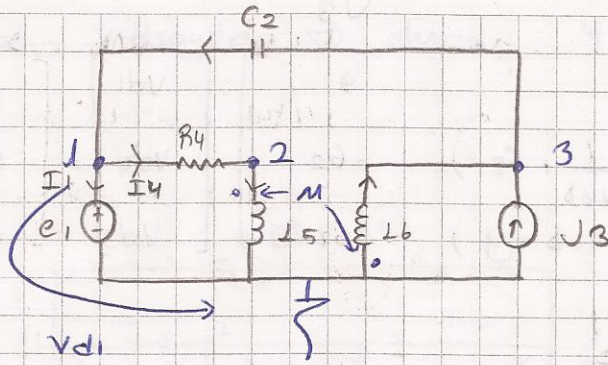 C2
R4
1
2
3
I1
I4
M
e1
L5
L6
J3
Vd1